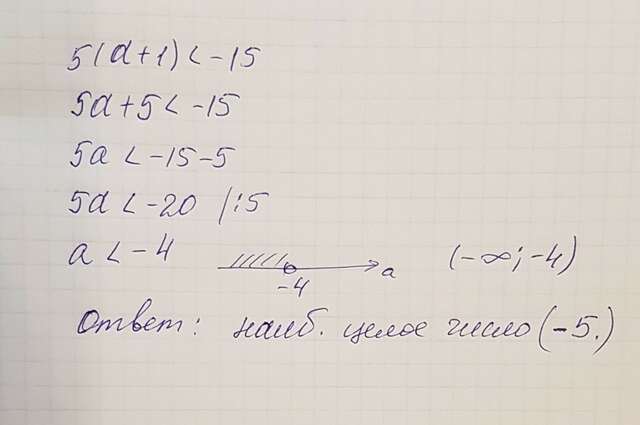 5(a+1) < -15
5a+5 < -15
5a < -15-5
5a < -20 |:5
a < -4 -4 a (-∞; -4)
Ответ: наиб. целое число (-5.)